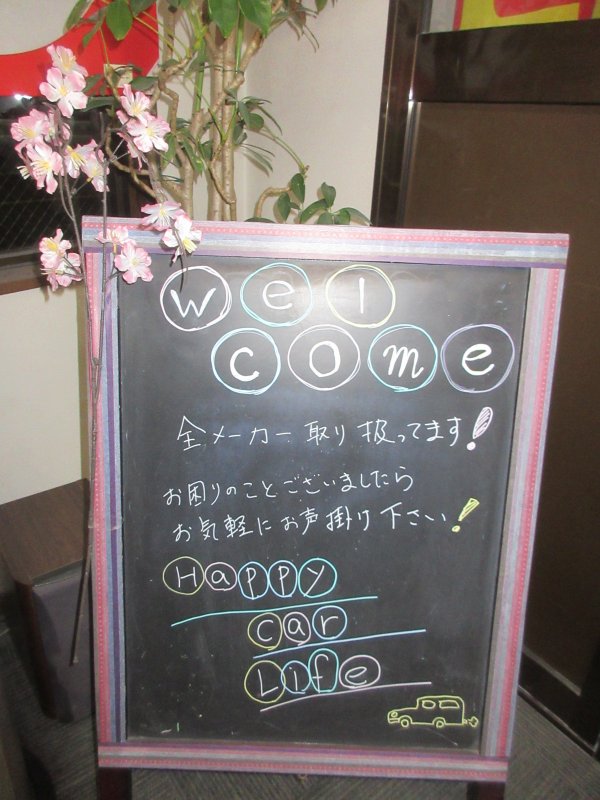 wel
come
全メーカー取り扱ってます!
お困りのことございましたら
お気軽にお声掛け下さい!
Happy
car
Life